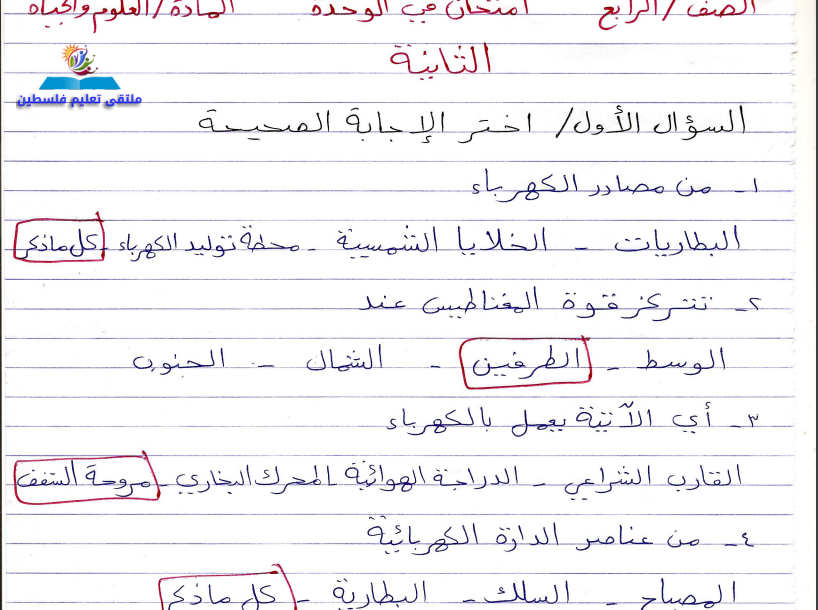 الصف / الرابع امتحان في الوحدة المادة / العلوم والحياة
الثانية
ملتقى تعليم فلسطين
السؤال الأول / اختر الإجابة الصحيحة
١- من مصادر الكهرباء
البطاريات - الخلايا الشمسية - محطة توليد الكهرباء - كل ماذكر
٢- تتركز قوة المغناطيس عند
الوسط - الطرفين - الشمال - الجنوب
٣- أي الآتية يعمل بالكهرباء
القارب الشراعي - الدراجة الهوائية - المحرك البخاري - مروحة السقف
٤- من عناصر الدارة الكهربائية
المصباح - السلك - البطارية - كل ماذكر